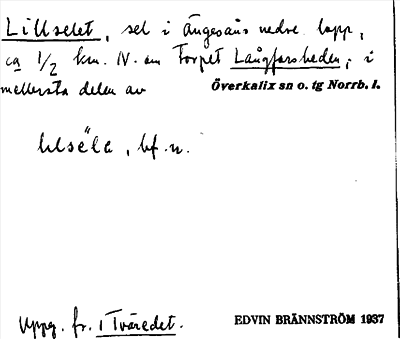 Lillselet, sel i Ängesåns nedre lopp,
ca 1/2 km. N. om Torpet Långforsheden, i
mellersta delen av Överkalix sn o. tg Norrb. l.
lılsëla, bf. n.
Uppg. fr. 1 Tväredet.
EDVIN BRÄNNSTRÖM 1937